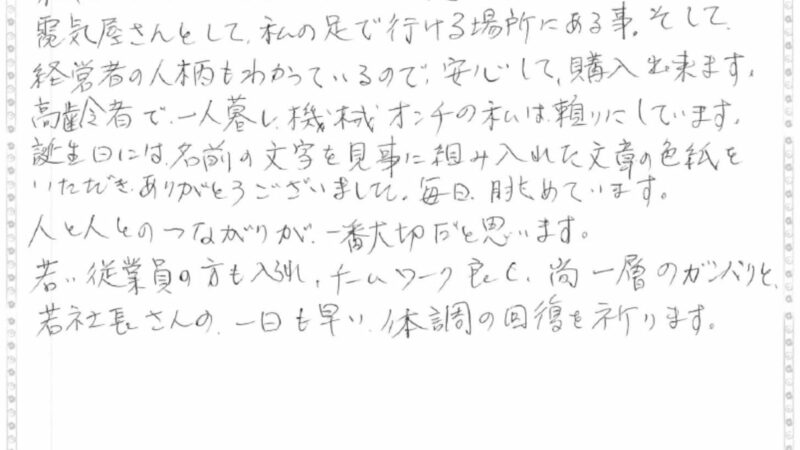 電気屋さんとして、私の足で行ける場所にある事。そして、
経営者の人柄もわかっているので、安心して、購入出来ます。
高齢者で、一人暮し、機械オンチの私は、頼りにしています。
誕生日には、名前の文字を見事に組み入れた文章の色紙を
いただき、ありがとうございました。毎日、眺めています。
人と人とのつながりが、一番大切だと思います。
若い従業員の方も入られ、チームワーク良く、尚一層のガンバリと、
若社長さんの、一日も早い、体調の回復を祈ります。